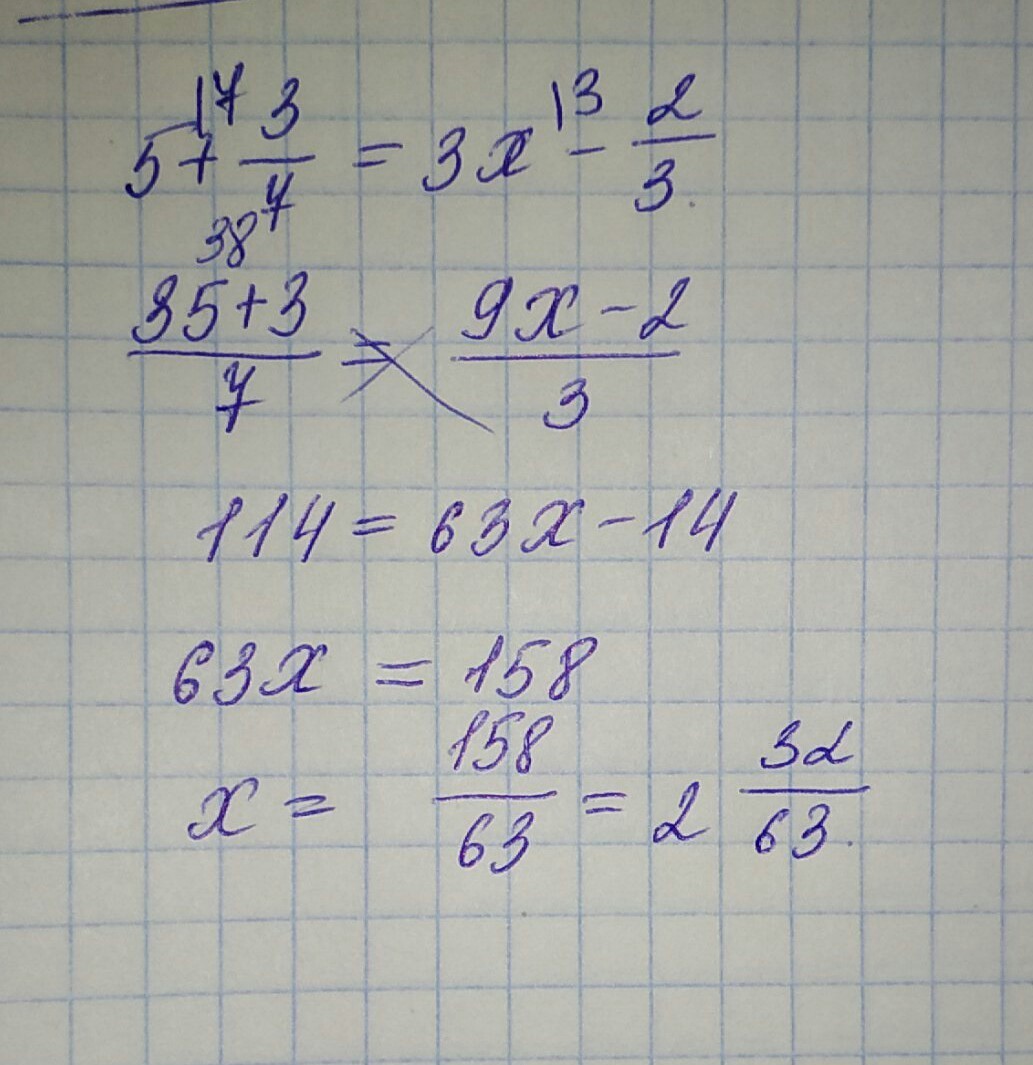 5 + |7 3/7 = 3x |3 - 2/3
38
(35+3)/7 = (9x-2)/3
114 = 63x - 14
63x = 158
x = 158/63 = 2 32/63